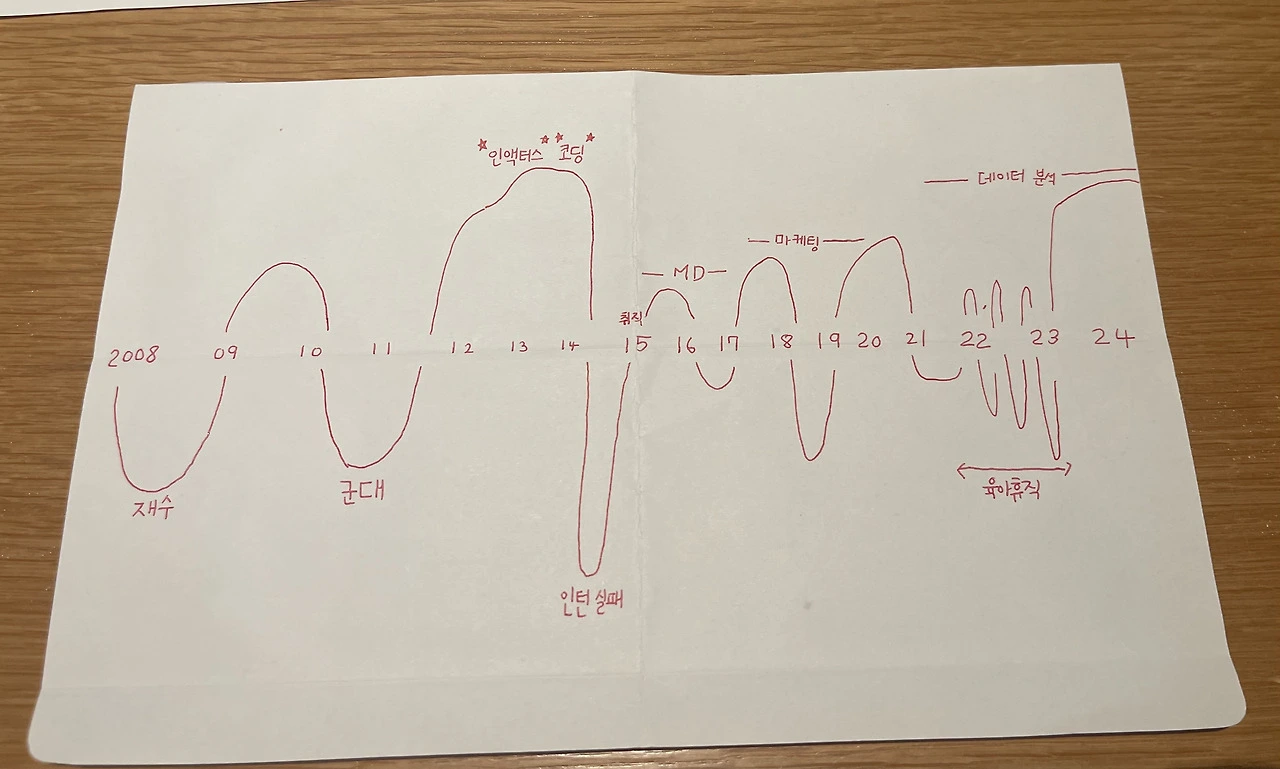 *인액터스* *코딩*
데이터 분석
마케팅
MD
취직
2008 09 10 11 12 13 14 15 16 17 18 19 20 21 22 23 24
재수
군대
육아휴직
인턴 실패